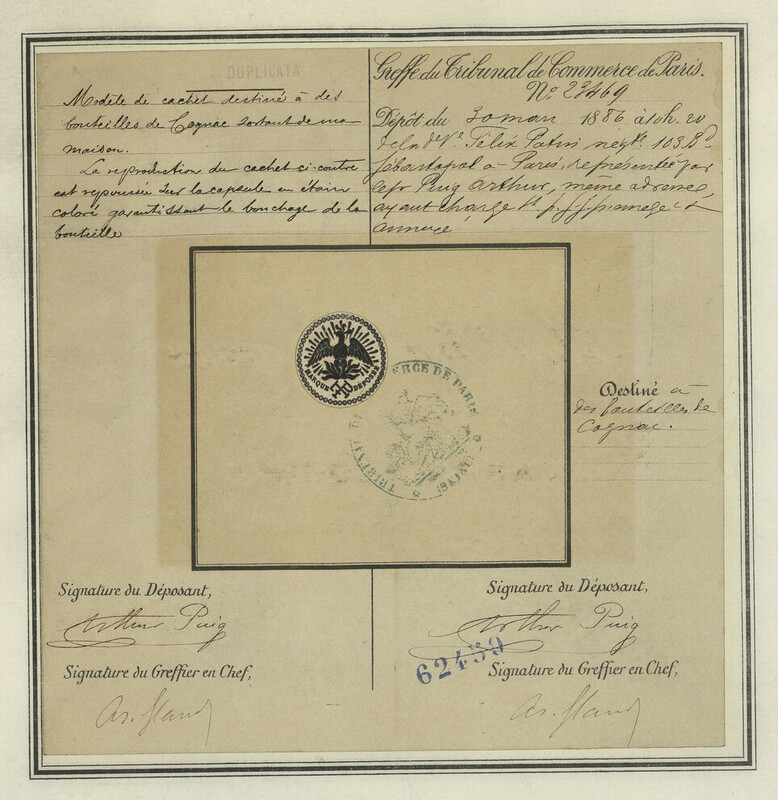 DUPLICATA
Modèle de cachet destiné à des
bouteilles de Cognac sortant de ma
maison.
La reproduction du cachet ci-contre
est repoussée sur la capsule en étain
coloré garantissant le bouchage de la
bouteille
Greffe du Tribunal de Commerce de Paris.
No 23469
Dépôt du 30 mars 1886 à 10h. 20
de la de Ve Félix Potin, négte 103 Bd
Sébastopol à Paris, représentée par
le sr Puig Arthur, même adresse,
ayant charge
annexé
MARQUE DÉPOSÉE
TRIBUNAL DE COMMERCE DE PARIS
Destiné à
des bouteilles de
Cognac.
Signature du Déposant,
Arthur Puig
Signature du Greffier en Chef,
Signature du Déposant,
Arthur Puig
62459
Signature du Greffier en Chef,